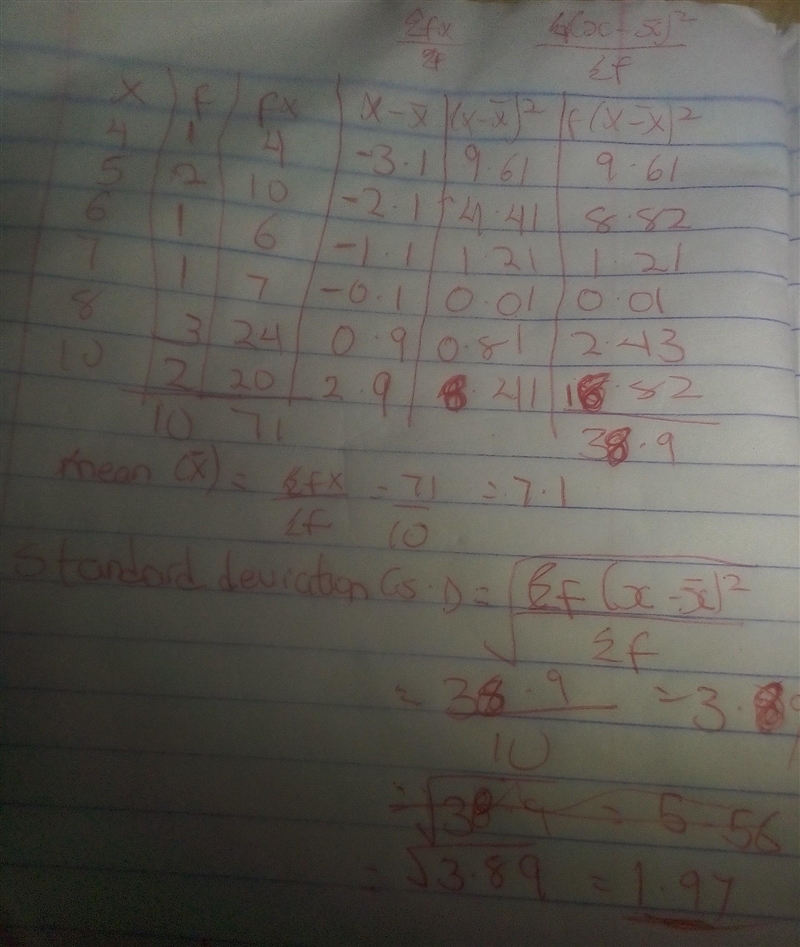 Σfx / Σf   Σf(x-x̄)² / Σf
X | f | fx | x-x̄ | (x-x̄)² | f(x-x̄)²
4 | 1 | 4 | -3.1 | 9.61 | 9.61
5 | 2 | 10 | -2.1 | 4.41 | 8.82
6 | 1 | 6 | -1.1 | 1.21 | 1.21
7 | 1 | 7 | -0.1 | 0.01 | 0.01
8 | 3 | 24 | 0.9 | 0.81 | 2.43
10 | 2 | 20 | 2.9 | 8.41 | 16.82
10 71 38.9
mean (x̄) = Σfx / Σf = 71 / 10 = 7.1
Standard deviation (S.D) = √(Σf(x-x̄)² / Σf)
= 38.9 / 10 = 3.89
= √38.9 = 5.56
= √3.89 = 1.97